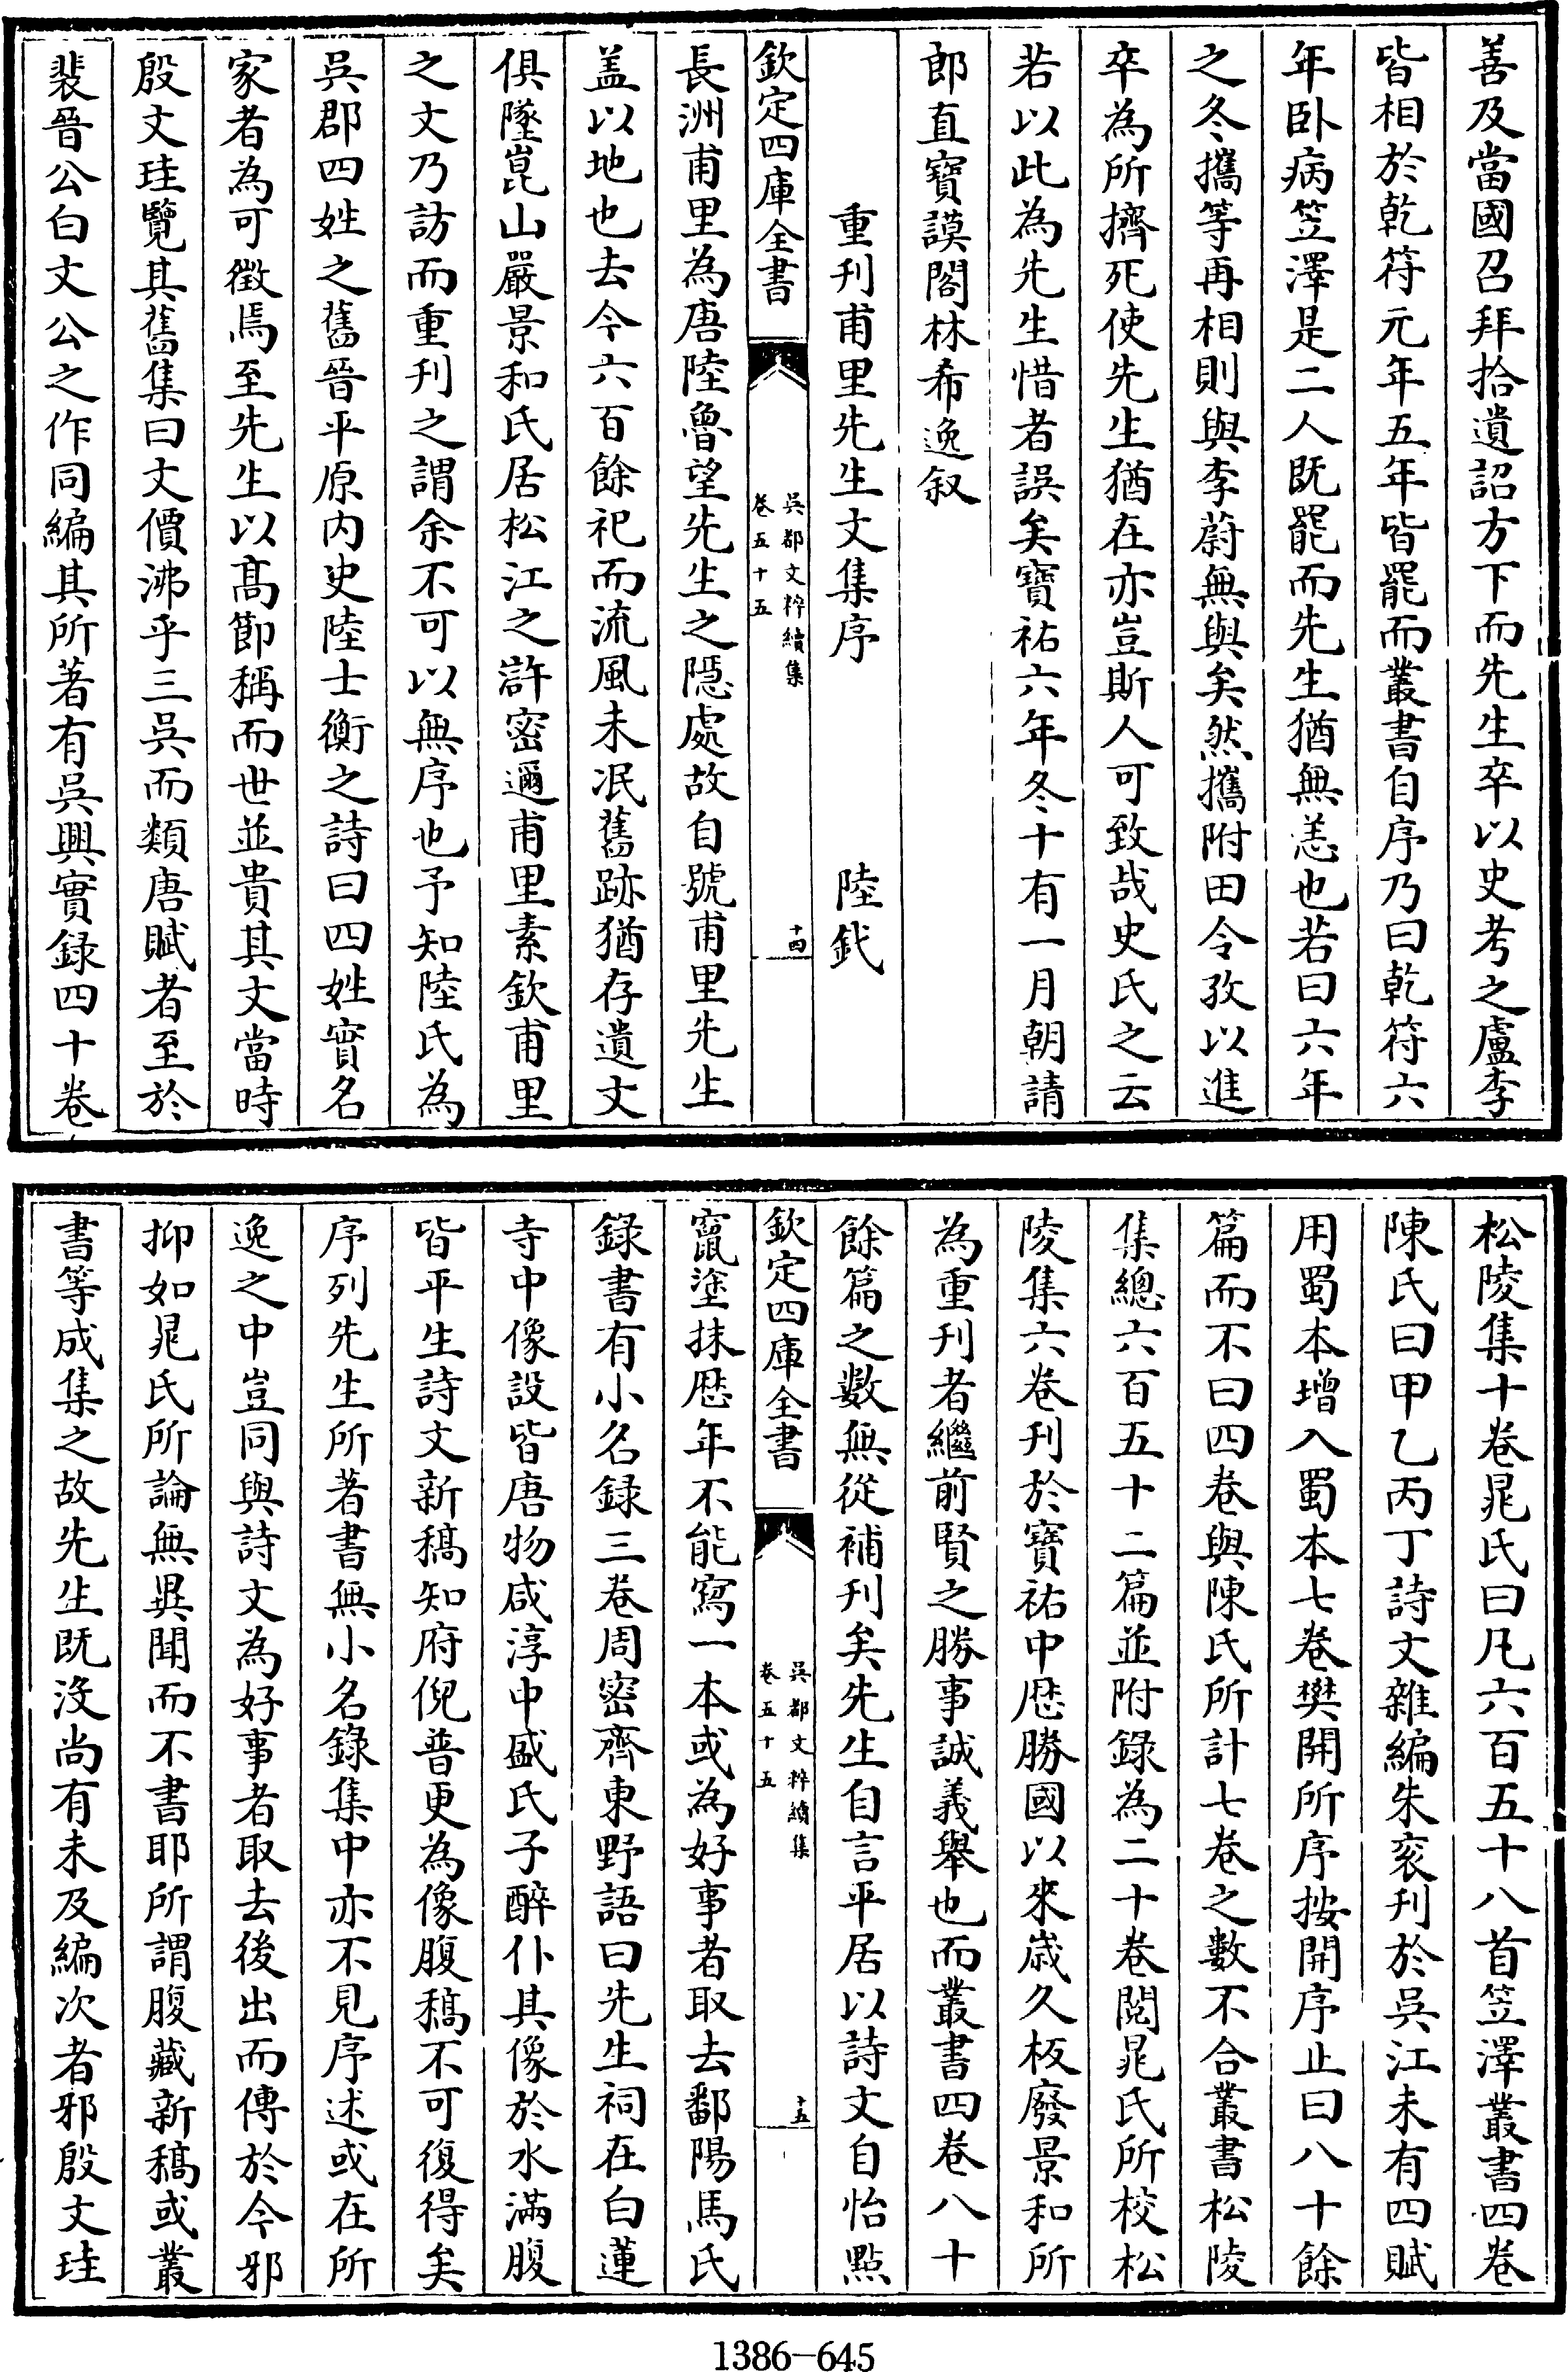 善及當國召拜拾遺詔方下而先生卒以史考之盧李
皆相於乾符元年五年皆罷而叢書自序乃曰乾符六
年卧病笠澤是二人既罷而先生猶無恙也若曰六年
之冬攜等再相則與李蔚無與矣然攜附田令孜以進
卒為所擠死使先生猶在亦豈斯人可致哉史氏之云
若以此為先生惜者誤矣寶祐六年冬十有一月朝請
郎直寶謨閣林希逸叙
重刊甫里先生文集序 陸釴
欽定四庫全書 吳都文粹續集 卷五十五 十四
長洲甫里為唐陸魯望先生之隱處故自號甫里先生
盖以地也去今六百餘祀而流風未冺舊跡猶存遺文
俱墜崑山嚴景和氏居松江之滸密邇甫里素欽甫里
之文乃訪而重刊之謂余不可以無序也予知陸氏為
吳郡四姓之舊晉平原内史陸士衡之詩曰四姓實名
家者為可徵焉至先生以髙節稱而世並貴其文當時
殷文珪覽其舊集曰文價沸乎三吳而類唐賦者至於
裴晉公白文公之作同編其所著有吳興實録四十卷
松陵集十卷晁氏曰凡六百五十八首笠澤叢書四卷
陳氏曰甲乙丙丁詩文雜編朱衮刊於吳江未有四賦
用蜀本增入蜀本七卷樊開所序按開序止曰八十餘
篇而不曰四卷與陳氏所計七卷之數不合叢書松陵
集總六百五十二篇並附錄為二十卷閲晁氏所校松
陵集六卷刊於寶祐中厯勝國以來歲久板廢景和所
為重刊者繼前賢之勝事誠義舉也而叢書四卷八十
餘篇之數無從補刊矣先生自言平居以詩文自怡點
欽定四庫全書 吳都文粹續集 卷五十五 十五
竄塗抹厯年不能寫一本或為好事者取去鄱陽馬氏
錄書有小名録三卷周密齊東野語曰先生祠在白蓮
寺中像設皆唐物咸淳中盛氏子醉仆其像於水滿腹
皆平生詩文新稿知府倪普更為像腹稿不可復得矣
序列先生所著書無小名錄集中亦不見序述或在所
逸之中豈同與詩文為好事者取去後出而傳於今邪
抑如晁氏所論無異聞而不書耶所謂腹藏新稿或叢
書等成集之故先生既沒尚有未及編次者邪殷文珪
1386-645